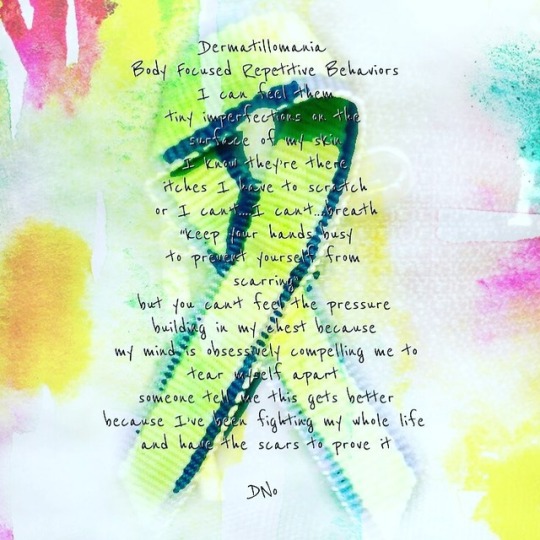 Dermatillomania
Body Focused Repetitive Behaviors
I can feel them
tiny imperfections on the
surface of my skin
I know they're there
itches I have to scratch
or I cant....I cant...breath
"Keep your hands busy
to prevent yourself from
scarring"
but you cant feel the pressure
building in my chest because
my mind is obsessively compelling me to
tear myself apart
someone tell me this gets better
because I've been fighting my whole life
and have the scars to prove it
DNo